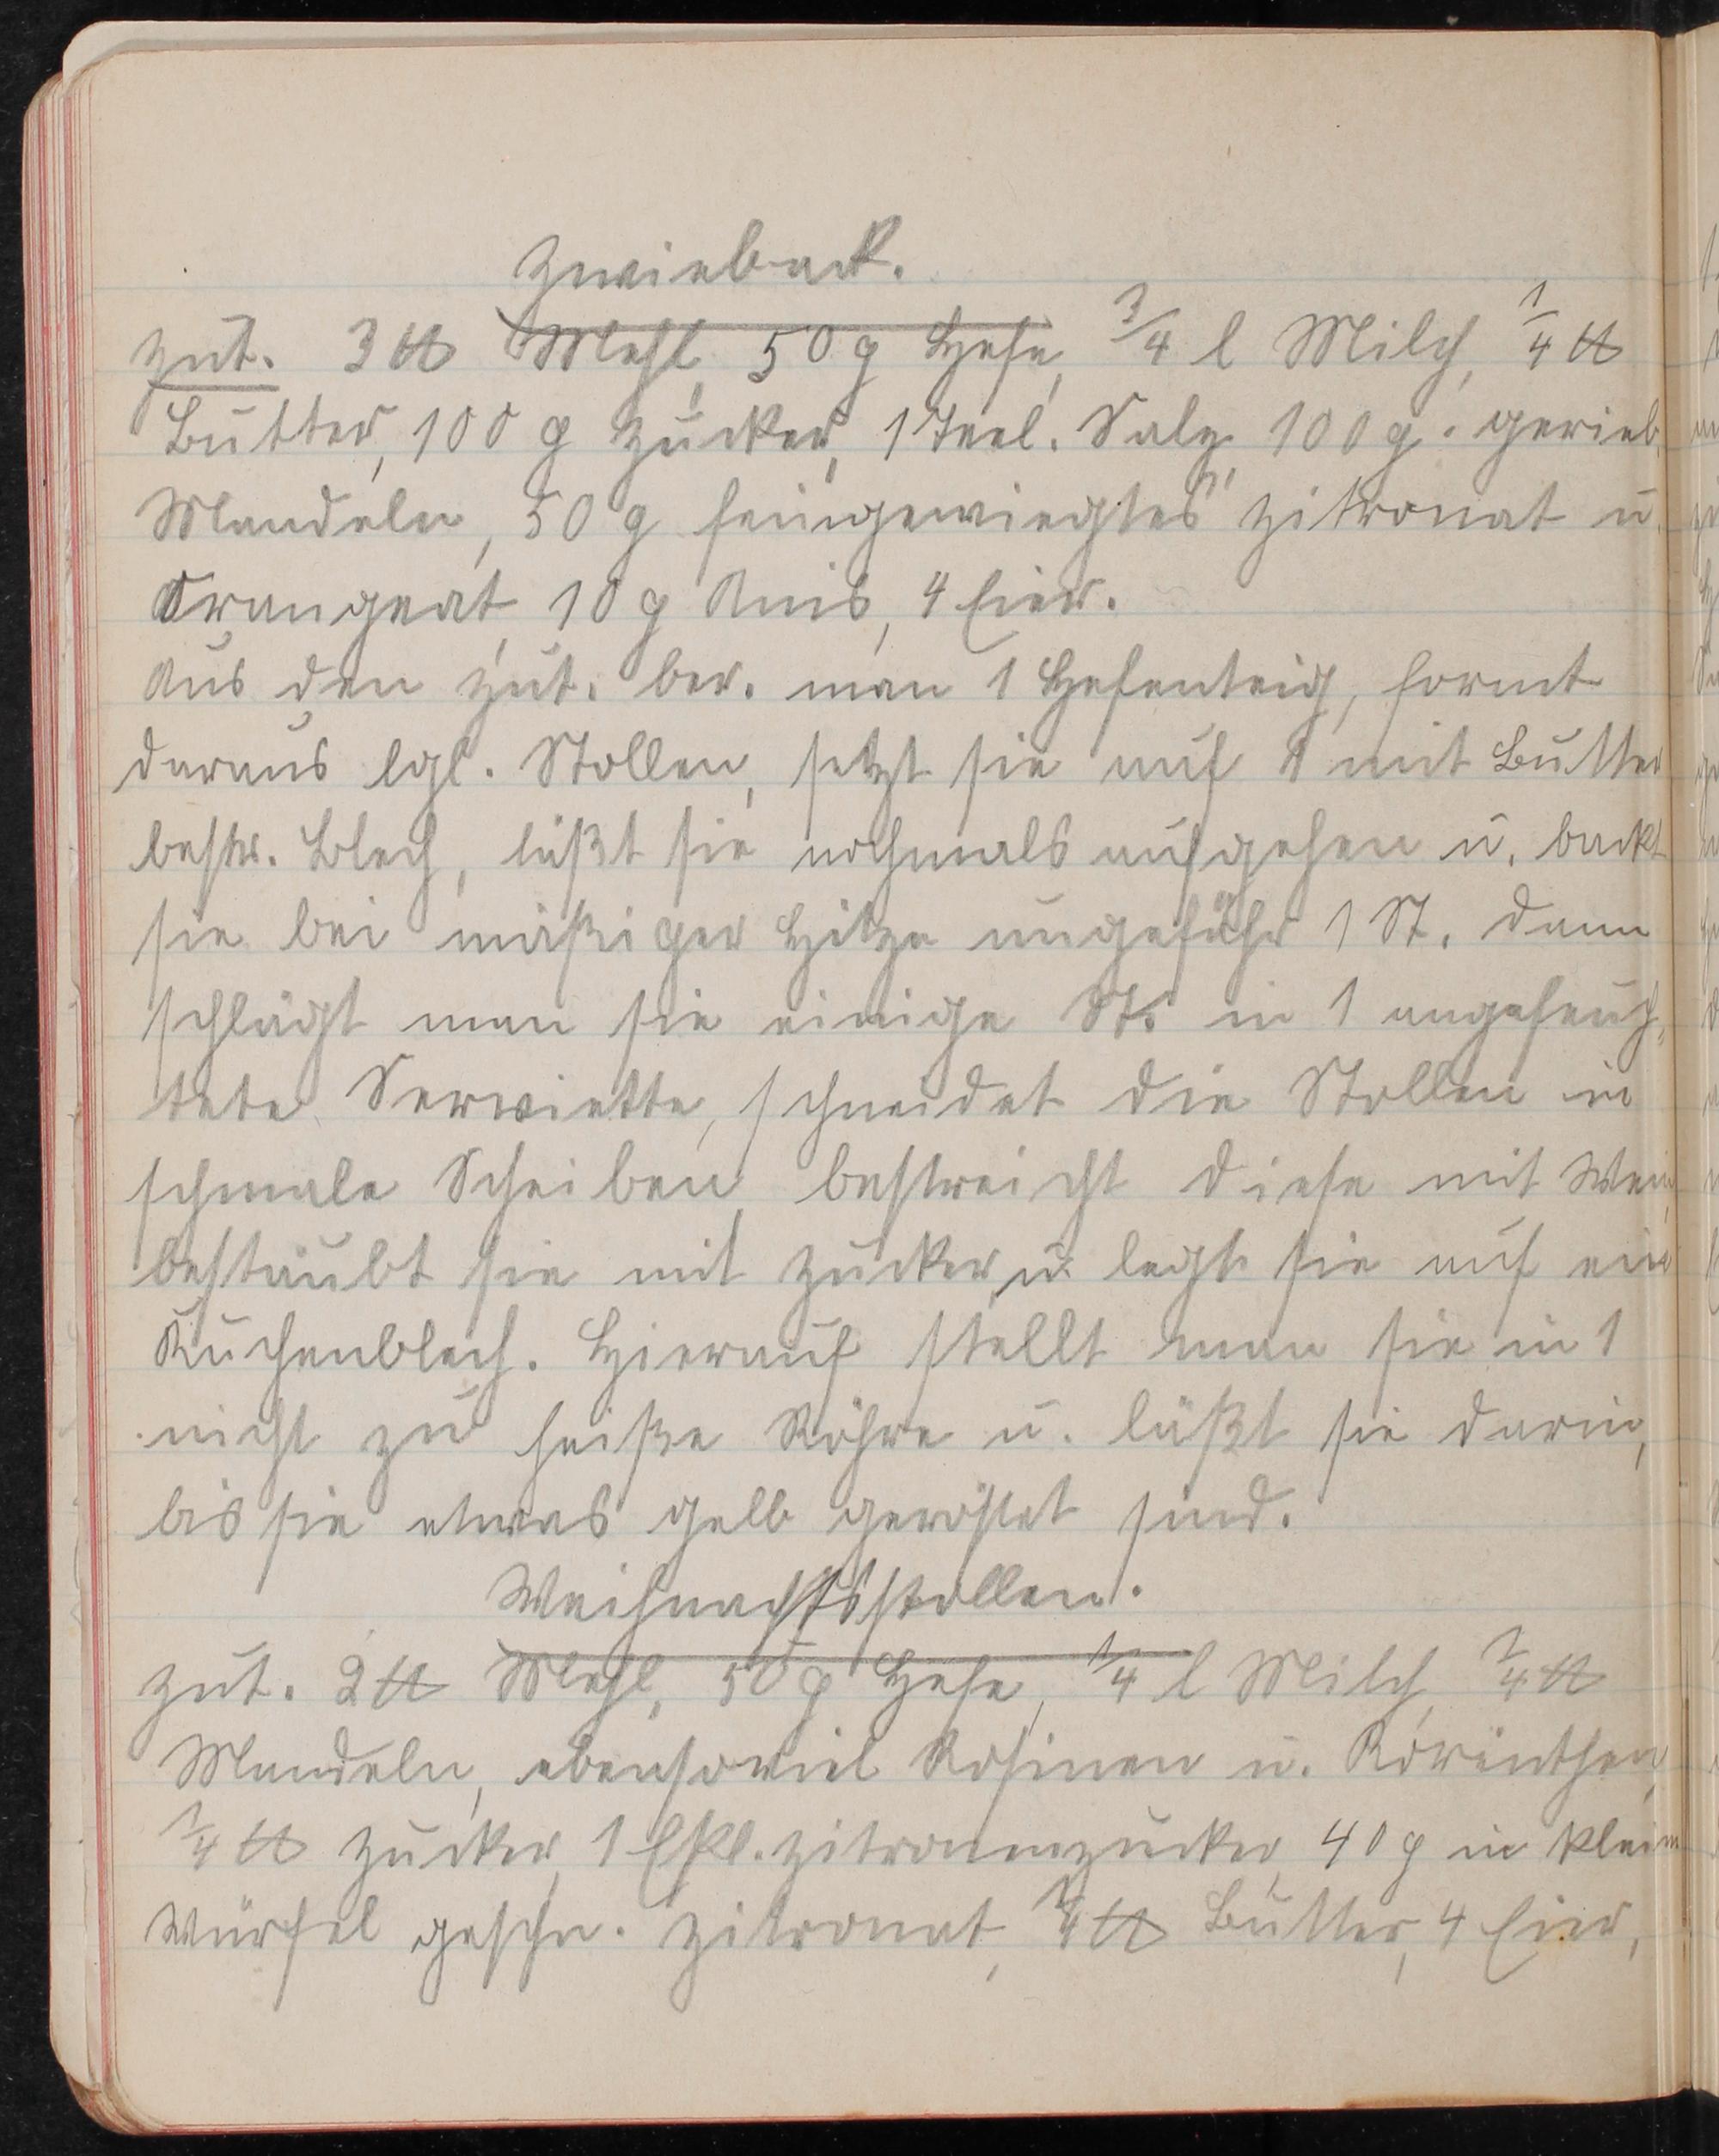 Zwieback.
Zut. 3 ℔ Mehl, 50 g Hefe, 3/4 l Milch, 1/4 ℔
Butter, 100 g Zucker, 1 Teel. Salz, 100 g. gerieb.
Mandeln, 50 g feingewiegtes Zitronat u.
Orangeat, 10 g Anis, 4 Eier.
Aus den Zut. ber. man 1 Hefenteig, formt
daraus lgl. Stollen, setzt sie auf 1 mit Butter
bestr. Blech, läßt sie nochmals aufgehen u. backt
sie bei mäßiger Hitze ungefähr 1 St. Dann
schlägt man sie einige St. in 1 angefeuch-
tete Serviette, schneidet die Stollen in
schmale Scheiben, bestreicht diese mit Wein,
bestäubt sie mit Zucker, u. legt sie auf ein
Kuchenblech. Hierauf stellt man sie in 1
nicht zu heiße Röhre u. läßt sie darin,
bis sie etwas gelb geröstet sind.
Weihnachtsstollen.
Zut. 2 ℔ Mehl, 50 g Hefe, 1/4 l Milch, 1/4 ℔
Mandeln, ebensoviel Rosinen u. Korinthen,
1/4 ℔ Zucker, 1 Eßl. Zitronenzucker, 40 g in klein
Würfel geschn. Zitronat, 1/4 ℔ Butter, 4 Eier,